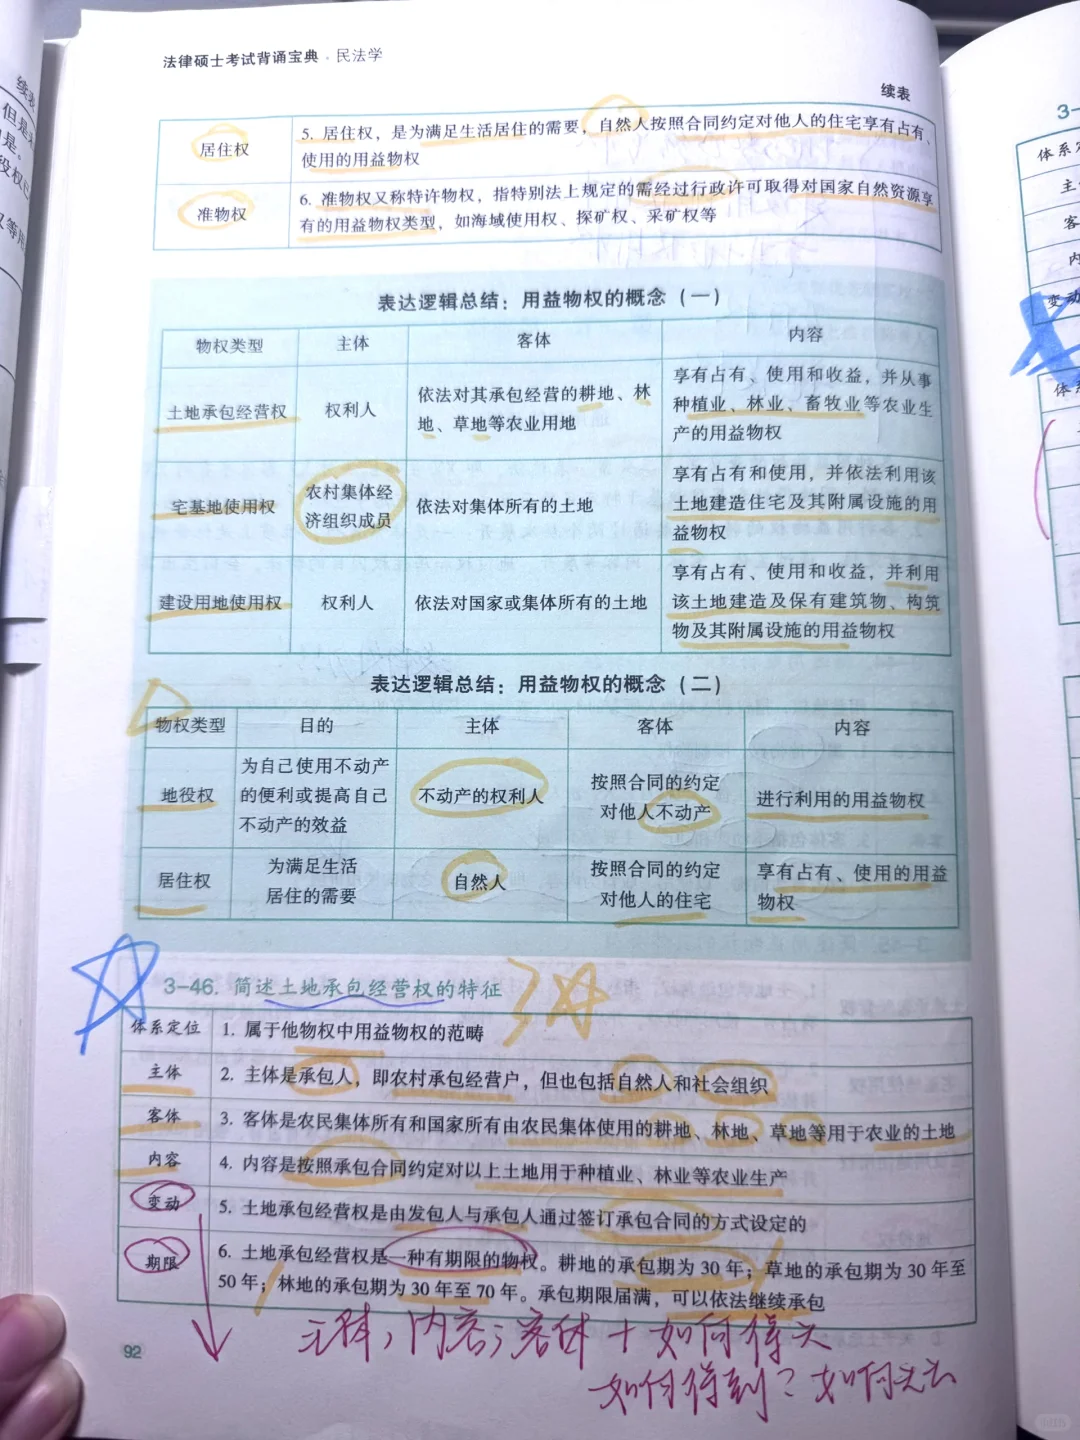 法律硕士考试背诵宝典·民法学
续表
居住权
5. 居住权，是为满足生活居住的需要，自然人按照合同约定对他人的住宅享有占有、
使用的用益物权
准物权
6. 准物权又称特许物权，指特别法上规定的需经过行政许可取得对国家自然资源享
有的用益物权类型，如海域使用权、探矿权、采矿权等
表达逻辑总结：用益物权的概念（一）
物权类型 主体 客体 内容
土地承包经营权 权利人
依法对其承包经营的耕地、林
地、草地等农业用地
享有占有、使用和收益，并从事
种植业、林业、畜牧业等农业生
产的用益物权
宅基地使用权
农村集体经
济组织成员
依法对集体所有的土地
享有占有和使用，并依法利用该
土地建造住宅及其附属设施的用
益物权
建设用地使用权 权利人 依法对国家或集体所有的土地
享有占有、使用和收益，并利用
该土地建造及保有建筑物、构筑
物及其附属设施的用益物权
表达逻辑总结：用益物权的概念（二）
物权类型 目的 主体 客体 内容
地役权
为自己使用不动产
的便利或提高自己
不动产的效益
不动产的权利人
按照合同的约定
对他人不动产
进行利用的用益物权
居住权
为满足生活
居住的需要
自然人
按照合同的约定
对他人的住宅
享有占有、使用的用益
物权
3-46. 简述土地承包经营权的特征
体系定位 1. 属于他物权中用益物权的范畴
主体 2. 主体是承包人，即农村承包经营户，但也包括自然人和社会组织
客体 3. 客体是农民集体所有和国家所有由农民集体使用的耕地、林地、草地等用于农业的土地
内容 4. 内容是按照承包合同约定对以上土地用于种植业、林业等农业生产
变动 5. 土地承包经营权是由发包人与承包人通过签订承包合同的方式设定的
期限 6. 土地承包经营权是一种有期限的物权。耕地的承包期为 30 年；草地的承包期为 30 年至
50 年；林地的承包期为 30 年至 70 年。承包期限届满，可以依法继续承包
主体，内容，客体 + 如何得失
如何得到？如何失去
92